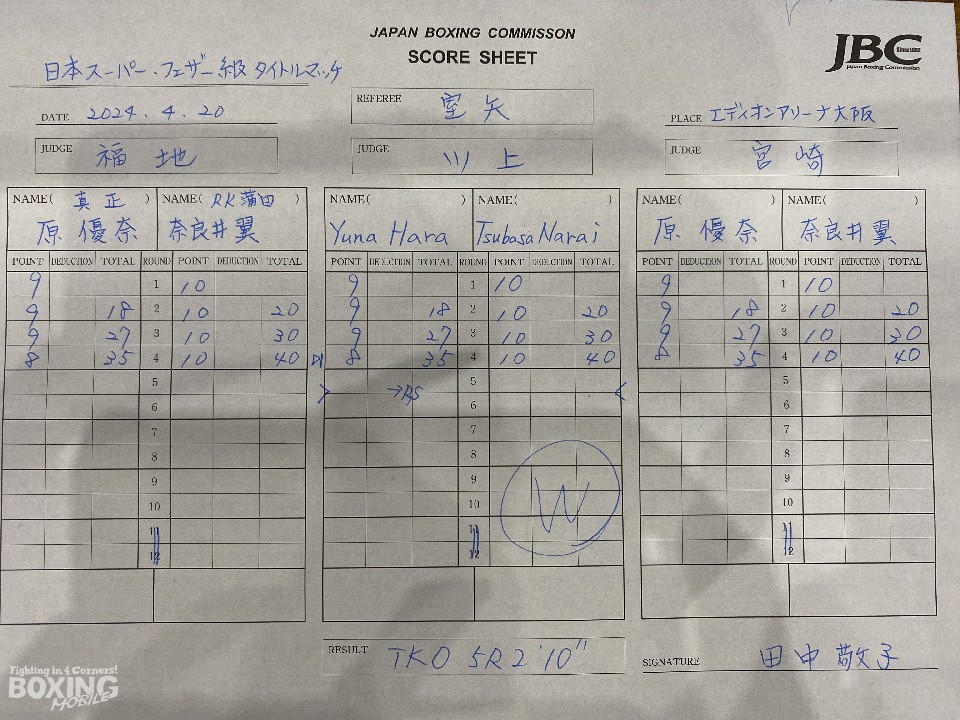 JAPAN BOXING COMMISSON
SCORE SHEET
JBC Since 1952
Japan Boxing Commission
日本スーパー・フェザー級タイトルマッチ
DATE 2024.4.20
REFEREE 室矢
PLACE エディオンアリーナ大阪
JUDGE 福地
JUDGE 川上
JUDGE 宮崎
NAME( 真正 ) NAME( RK蒲田 ) NAME( ) NAME( ) NAME( ) NAME( )
原優奈 奈良井翼 Yuna Hara Tsubasa Narai 原優奈 奈良井翼
POINT DEDUCTION TOTAL ROUND POINT DEDUCTION TOTAL POINT DEDUCTION TOTAL ROUND POINT DEDUCTION TOTAL POINT DEDUCTION TOTAL ROUND POINT DEDUCTION TOTAL
9 1 10 9 1 10 9 1 10
9 18 2 10 20 9 18 2 10 20 9 18 2 10 20
9 27 3 10 30 9 27 3 10 30 9 27 3 10 30
8 35 4 10 40 8 35 4 10 40 8 35 4 10 40
5 5 5
6 > 6 < 6
7 7 7
8 8 8
9 9 9
10 W 10 10
11 11 11
12 12 12
RESULT TKO 5R 2'10"
SIGNATURE 田中敬子
Fighting in 4 Corners!
BOXING
MOBILE